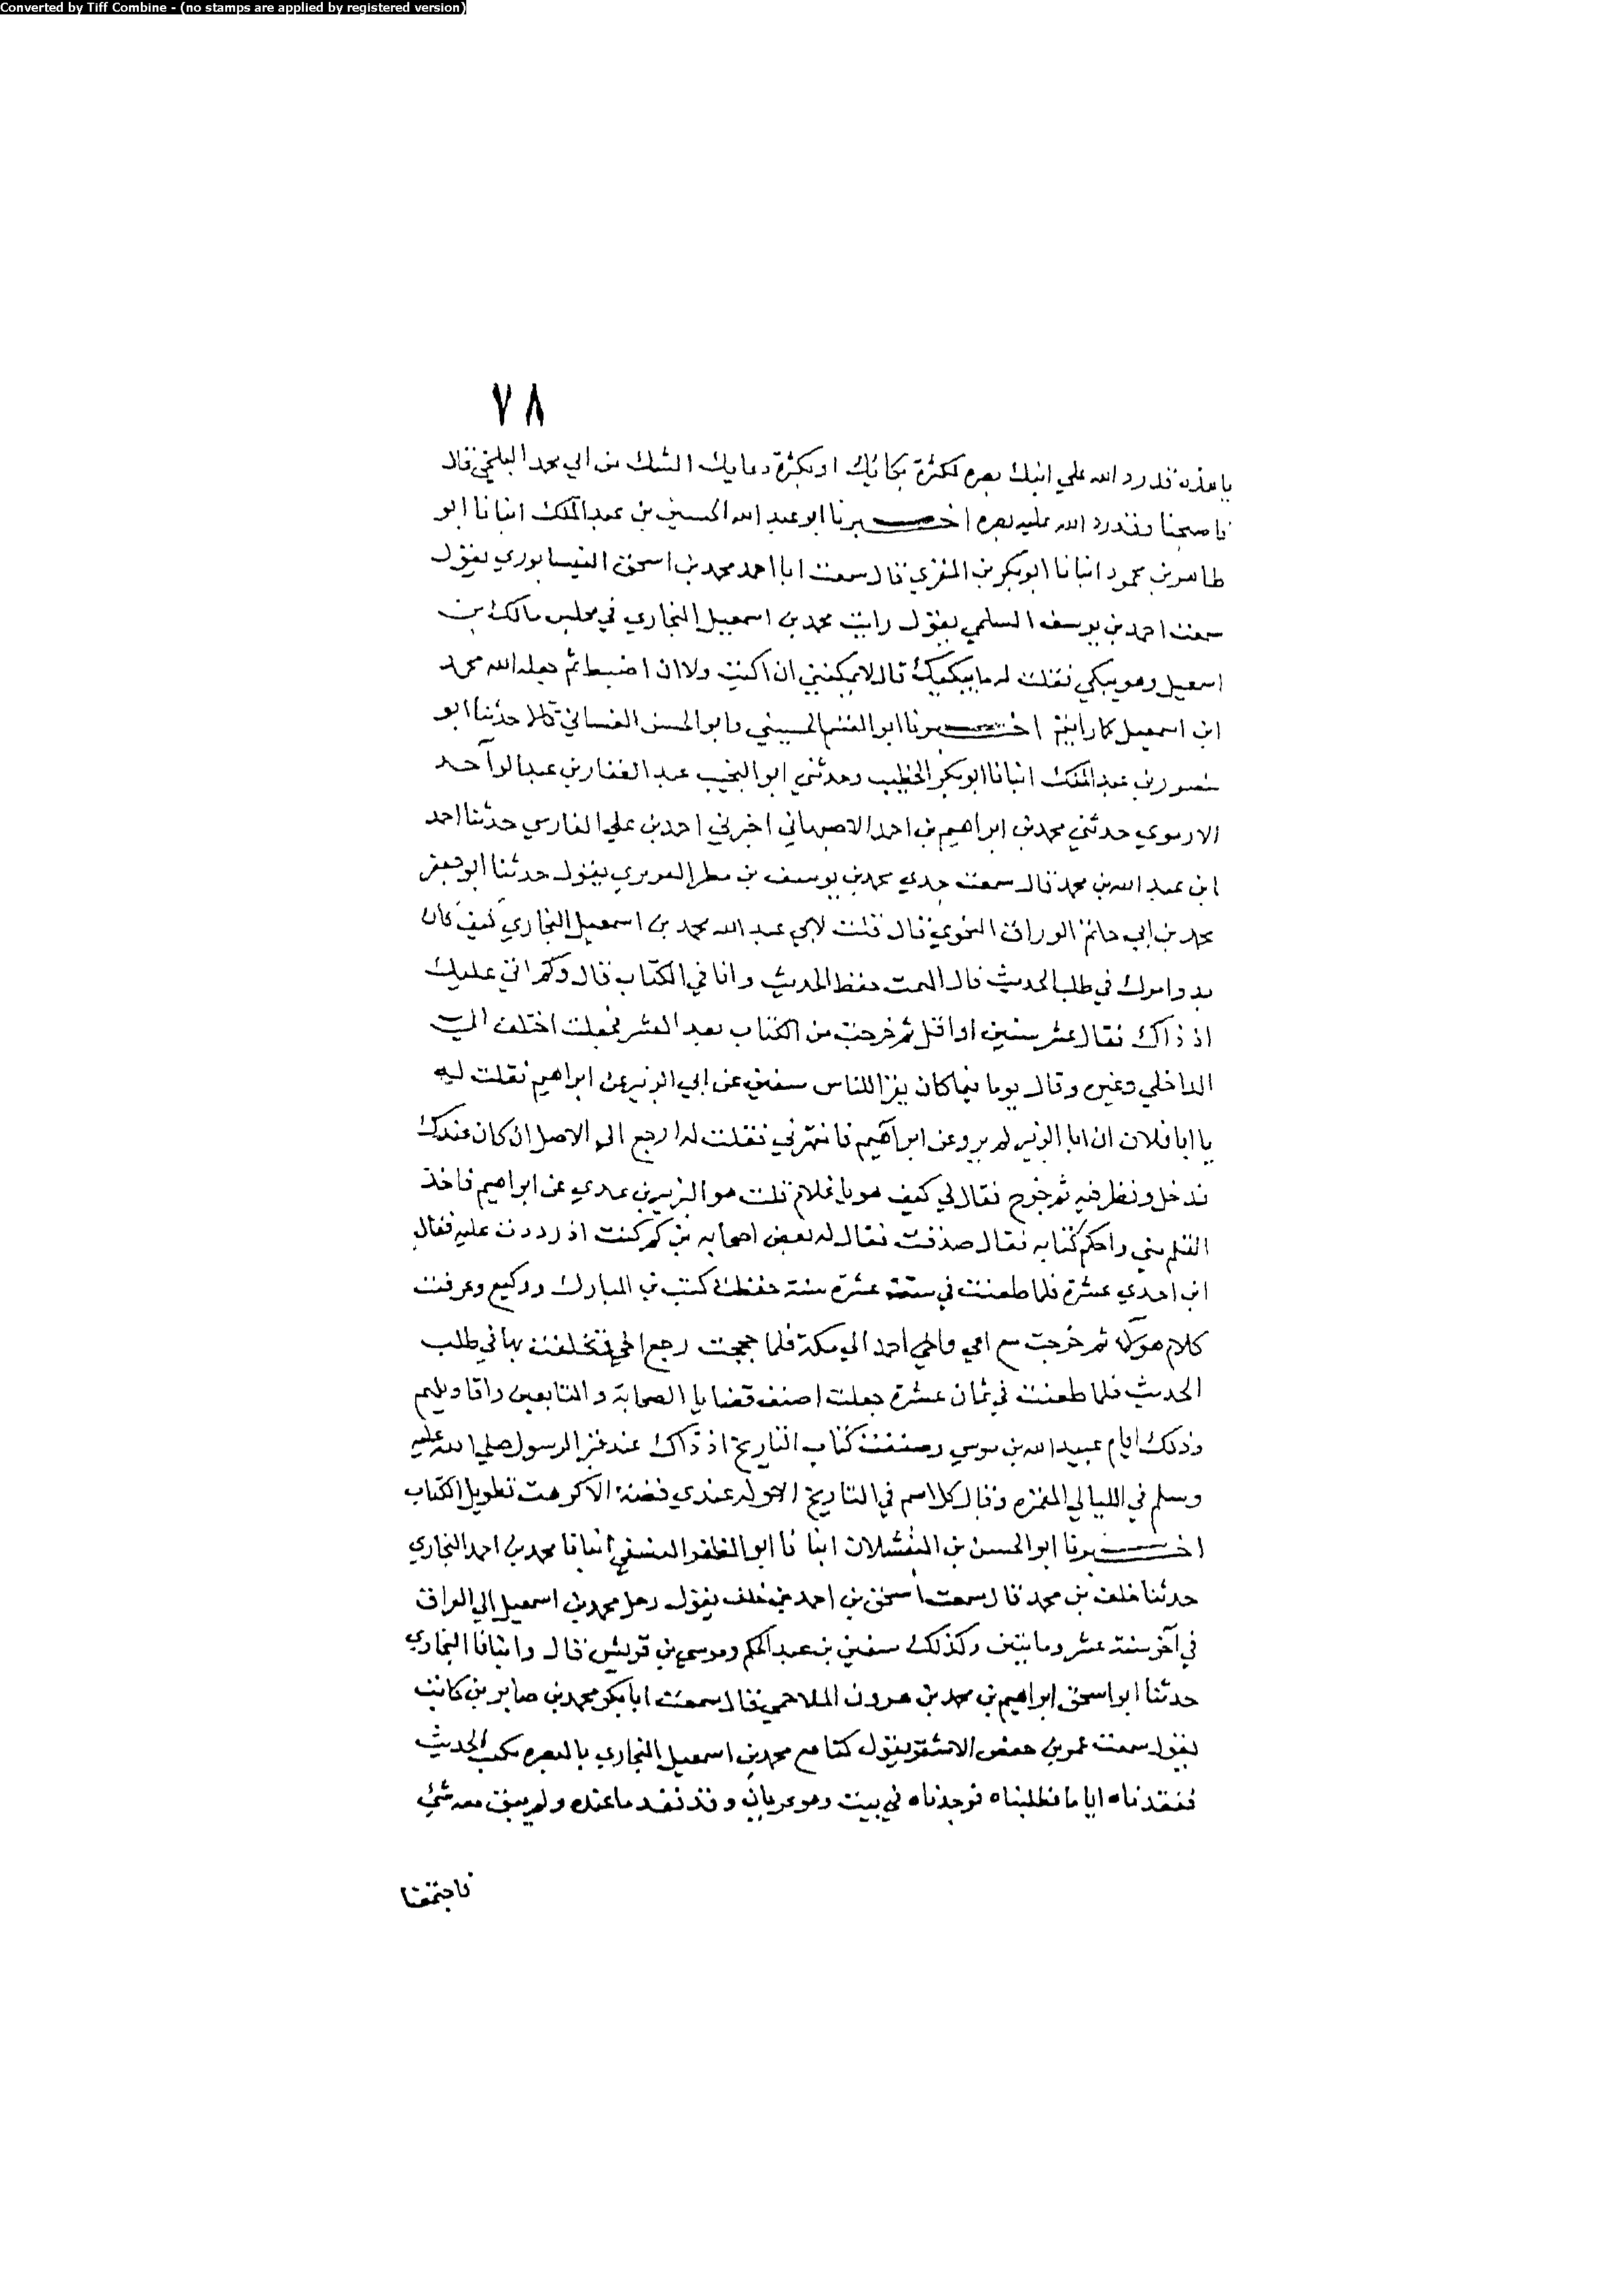 Converted by Tiff Combine - (no stamps are applied by registered version)
٧٨
يا هذه قد رد الله علي ابنك بصره لكثرة بكائك او بكثرة دعايك الشك من ابي محمد البلخي قال
فاصبحنا وقد رد الله عليه بصره اخبرنا ابو عبد الله الحسين بن عبد الملك انبانا ابو
طاهر بن محمود انبانا ابو بكر بن المقري قال سمعت ابا احمد محمد بن اسحق النيسابوري يقول
سمعت احمد بن يوسف السلمي يقول رايت محمد بن اسمعيل البخاري في مجلس مالك بن
اسمعيل وهو يبكي فقلت له ما يبكيك قال لا يمكنني ان اكتب ولا ان اضبط ثم جعله الله محمد
ابن اسمعيل كما رايتم اخبرنا ابو القسم الحسيني وابو الحسن الغساني قالا حدثنا ابو
منصور بن عبد الملك انبانا ابو بكر الخطيب وحدثني ابو النجيب عبد الغفار بن عبد الواحد
الارموي حدثني محمد بن ابراهيم بن احمد الاصبهاني اخبرني احمد بن علي الفارسي حدثنا احمد
ابن عبد الله بن محمد قال سمعت جدي محمد بن يوسف بن مطر الفربري يقول حدثنا ابو جعفر
محمد بن ابي حاتم الوراق النحوي قال قلت لابي عبد الله محمد بن اسمعيل البخاري كيف كان
بدو امرك في طلب الحديث قال الهمت حفظ الحديث وانا في الكتاب قال وكم اتي عليك
اذ ذاك فقال عشر سنين او اقل ثم خرجت من الكتاب بعد العشر فجعلت اختلف الي
الداخلي وغيره وقال يوما فيما كان يقرا للناس سفين عن ابي الزبير عن ابراهيم فقلت له
يا ابا فلان ان ابا الزبير لم يرو عن ابراهيم فانتهرني فقلت له ارجع الي الاصل ان كان عندك
فدخل ونظر فيه ثم خرج فقال لي كيف هو يا غلام قلت هو الزبير بن عدي عن ابراهيم فاخذ
القلم مني واحكم كتابه فقال صدقت فقال له بعض اصحابه بن كم كنت اذ رددت عليه فقال
ابن احدي عشرة فلما طعنت في ستة عشرة سنة حفظت كتب بن المبارك ووكيع وعرفت
كلام هولاء ثم خرجت مع امي واخي احمد الي مكة فلما حججت رجع اخي فتخلفت بها في طلب
الحديث فلما طعنت في ثمان عشرة جعلت اصنف قضايا الصحابة والتابعين واقاويلهم
وذلك ايام عبيد الله بن موسي وصنفت كتاب التاريخ اذ ذاك عند قبر الرسول صلي الله عليه
وسلم في الليالي المقمرة وقال كل اسم في التاريخ الا وله عندي قصة الا كرهت تطويل الكتاب
اخبرنا ابو الحسن بن القشلان انبانا ابو المظفر النسفي انبانا محمد بن احمد البخاري
حدثنا خلف بن محمد قال سمعت اسحق بن احمد بن خلف يقول رحل محمد بن اسمعيل الي العراق
في آخر سنة عشر ومايتين وكذلك سفين بن عبد الحكم وموسي بن قريش قال وانبانا البخاري
حدثنا ابو اسحق ابراهيم بن محمد بن هرون الملاحمي قال سمعت ابا بكر محمد بن صابر بن كاتب
يقول سمعت عمر بن حفص الاشقر يقول كنا مع محمد بن اسمعيل البخاري بالبصره نكتب الحديث
ففقدناه اياما فطلبناه فوجدناه في بيت وهو عريان وقد نفد ما عنده ولم يبق معه شئ
فاجتمعنا